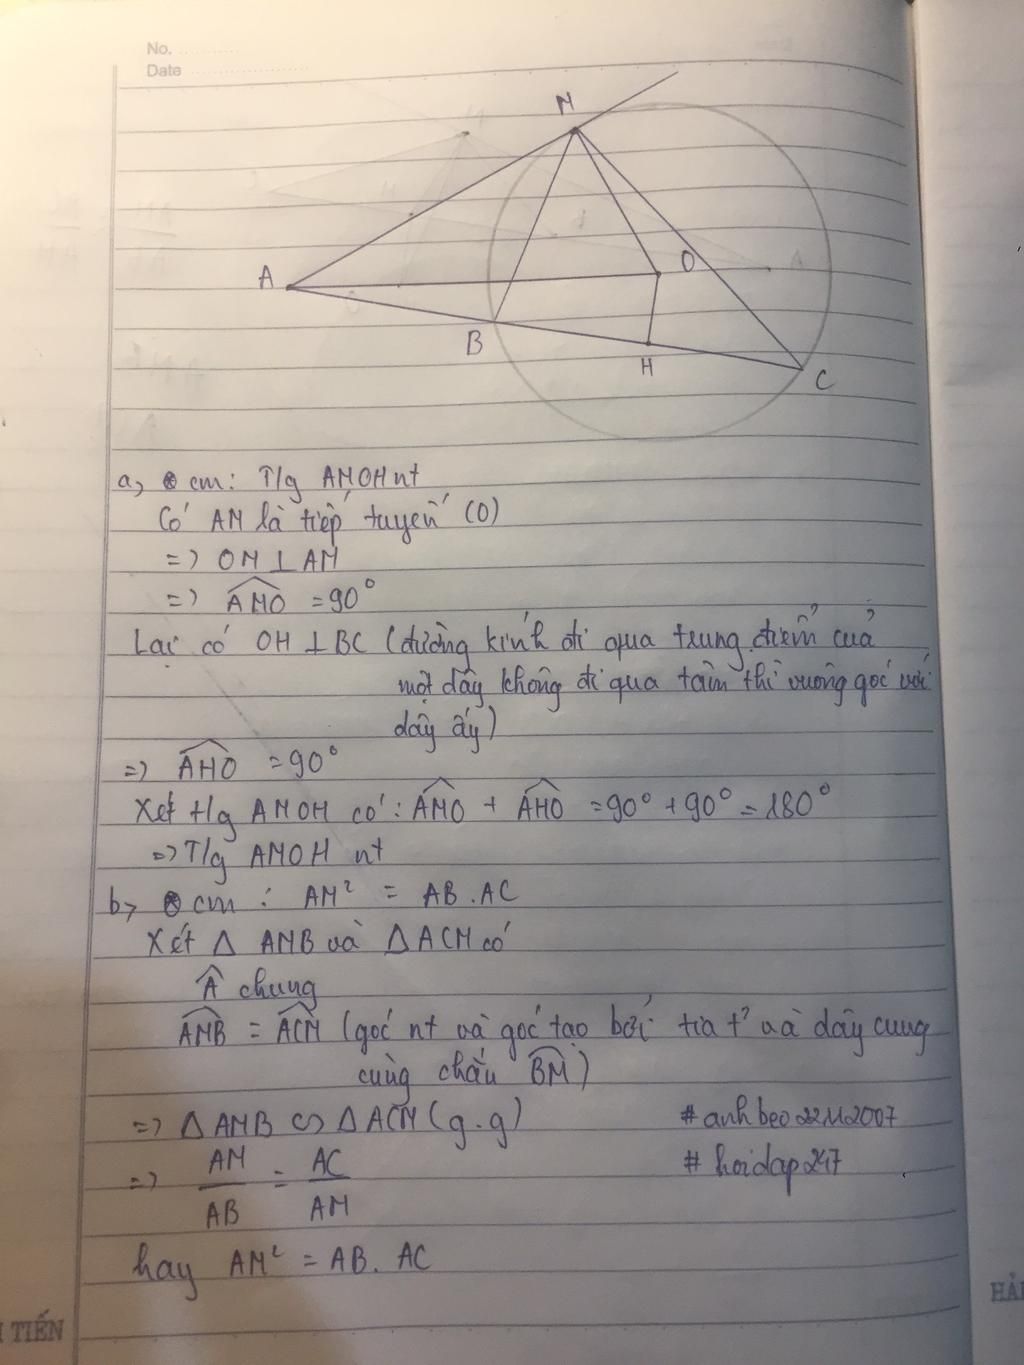 No.
Date
M
A
O
B
H
C
a, cm: T/g AMOH nt
Có AM là tiếp tuyến (O)
=> OM ⊥ AM
=> AMO = 90°
Lại có OH ⊥ BC (đường kính đi qua trung điểm của
một dây không đi qua tâm thì vuông góc với
dây ấy)
=> AHO = 90°
Xét t/g AMOH có: AMO + AHO = 90° + 90° = 180°
=> T/g AMOH nt
b, cm: AM² = AB.AC
Xét Δ AMB và Δ ACM có
Â chung
AMB = ACM (góc nt và góc tạo bởi tia t² và dây cung
cùng chắn BM)
=> Δ AMB ∽ Δ ACM (g.g)
#anhbeo22112007
=> AM/AB = AC/AM
#hoidap247
hay AM² = AB. AC
TIẾN
HẢI